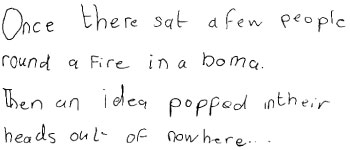 Once there sat a few people
round a fire in a boma.
Then an idea popped in their
heads out of nowhere...